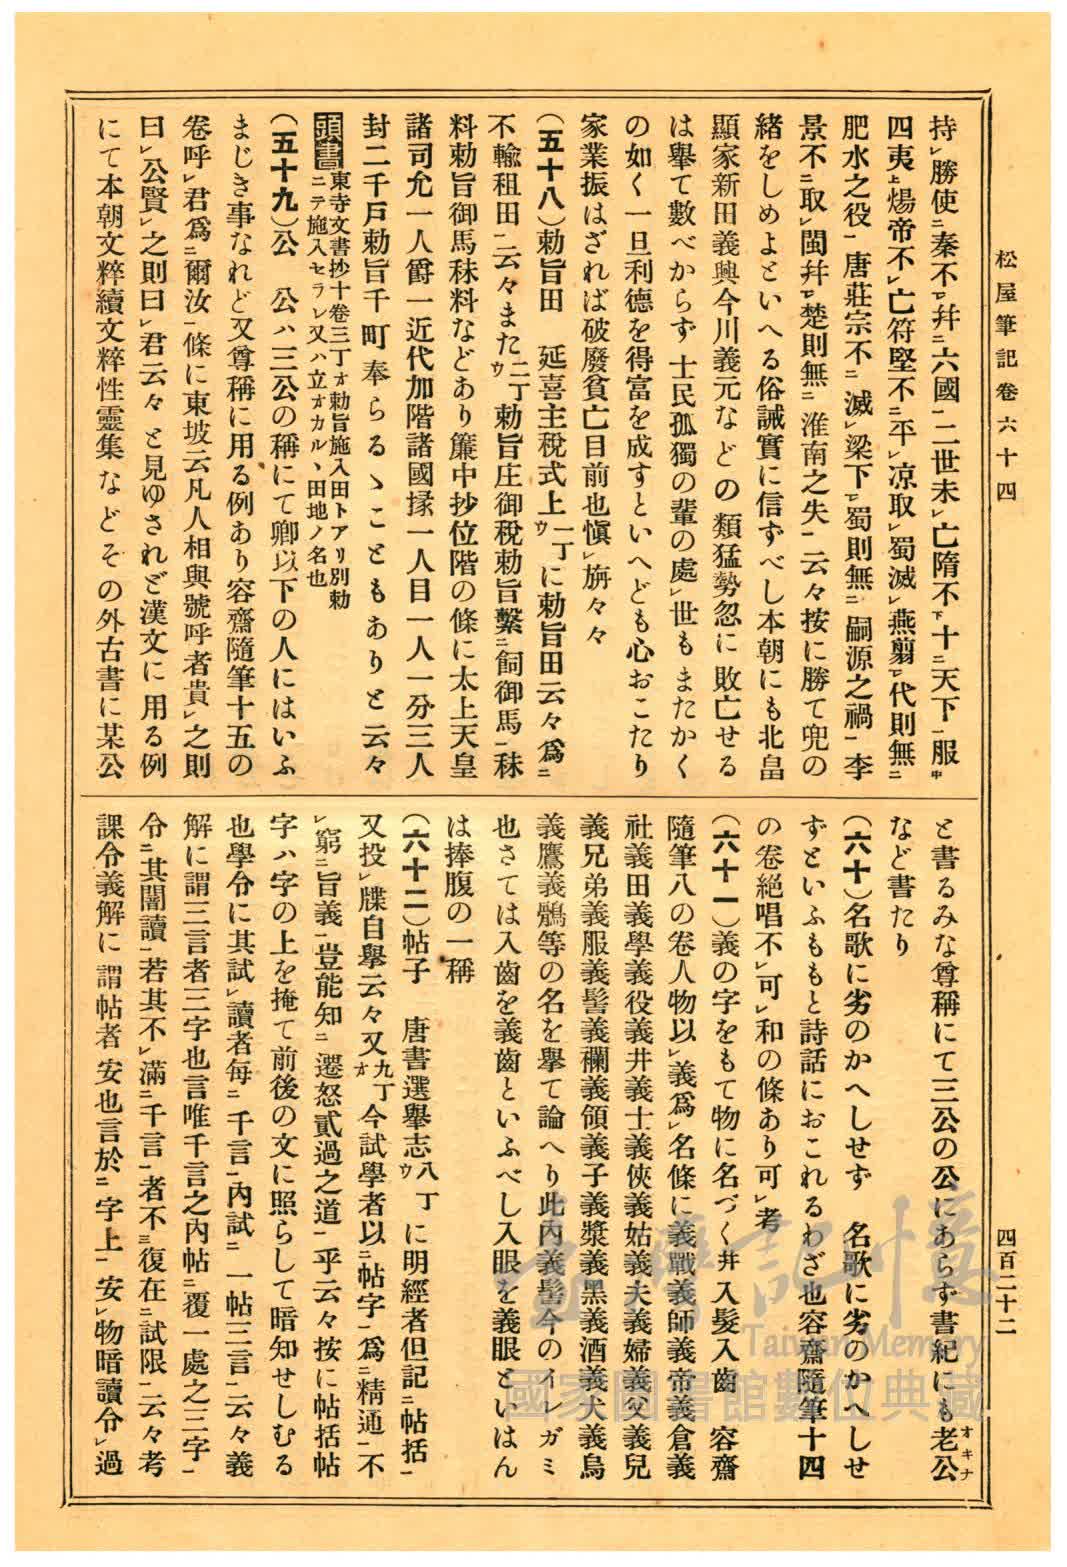 松屋筆記卷六十四
四百二十二
持㆑勝使㆘秦不㆗幷㆓六國㆒二世未㆑亡隋不㆘十㆓天下㆒服㆗
四夷㆖煬帝不㆑亡符堅不㆓平㆑凉取㆑蜀滅㆑燕翦㆒㆑代則無㆓
肥水之役㆒唐莊宗不㆓滅㆑梁下㆒㆑蜀則無㆓嗣源之禍㆒李
景不㆓取㆑閩幷㆒㆑楚則無㆓淮南之失㆒云々按に勝て兜の
緒をしめよといへる俗誡實に信ずべし本朝にも北畠
顯家新田義興今川義元などの類猛勢忽に敗亡せる
は擧て數べからず士民孤獨の輩の處㆑世もまたかく
の如く一旦利德を得富を成すといへども心おこたり
家業振はざれば破廢貧亡目前也愼㆑旃々々
(五十八)勅旨田　延喜主稅式上一丁ウに勅旨田云々爲㆓
不輸租田㆒云々また二丁ウ勅旨庄御稅勅旨繫㆓飼御馬㆒秣
料勅旨御馬秣料などあり簾中抄位階の條に太上天皇
諸司允一人爵一近代加階諸國掾一人目一人一分三人
封二千戶勅旨千町奉らるゝこともありと云々
頭書東寺文書抄十卷三丁オ勅旨施入田トアリ別勅
ニテ施入セラレ又ハ立オカルヽ田地ノ名也
(五十九)公　公ハ三公の稱にて卿以下の人にはいふ
まじき事なれど又尊稱に用る例あり容齋隨筆十五の
卷呼㆑君爲㆓爾汝㆒條に東坡云凡人相與號呼者貴㆑之則
曰㆑公賢㆑之則曰㆑君云々と見ゆされど漢文に用る例
にて本朝文粹續文粹性靈集などその外古書に某公
と書るみな尊稱にて三公の公にあらず書紀にも老公オキナ
など書たり
(六十)名歌に劣のかへしせず　名歌に劣のかへしせ
ずといふももと詩話におこれるわざ也容齋隨筆十四
の卷絕唱不㆑可㆑和の條あり可㆑考
(六十一)義の字をもて物に名づく幷入髮入齒　容齋
隨筆八の卷人物以㆑義爲㆑名條に義戰義師義帝義倉義
社義田義學義役義井義士義俠義姑義夫義婦義父義兒
義兄弟義服義髻義襴義領義子義漿義黑義酒義犬義烏
義鷹義鶻等の名を擧て論へり此內義髻今のイレガミ
也さては入齒を義齒といふべし入眼を義眼といはん
は捧腹の一稱
(六十二)帖子　唐書選擧志八丁ウに明經者但記㆓帖括㆒
又投㆑牒自擧云々又九丁オ今試學者以㆓帖字㆒爲㆓精通㆒不
㆑窮㆓旨義㆒豈能知㆓遷怒貳過之道㆒乎云々按に帖括帖
字ハ字の上を掩て前後の文に照らして暗知せしむる
也學令に其試㆑讀者每㆓千言㆒內試㆓一帖三言㆒云々義
解に謂三言者三字也言唯千言之內帖㆓覆一處之三字㆒
令㆓其闇讀㆒若其不㆑滿㆓千言㆒者不㆔復在㆓試限㆒云々考
課令義解に謂帖者安也言於㆓字上㆒安㆑物暗讀令㆑過
臺灣記憶
Taiwan Memory
國家圖書館數位典藏